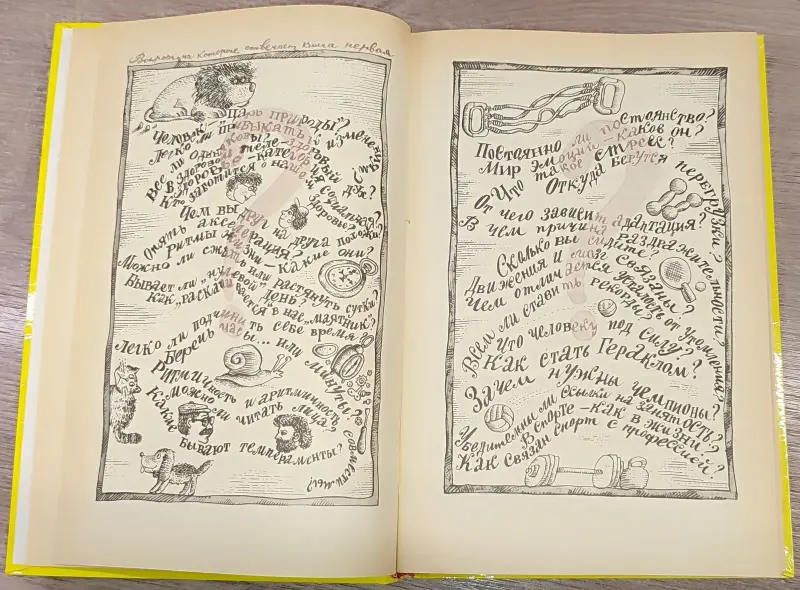 Вопросы, на которые отвечает книга первая
Человек — "царь природы"?
Легко ли привыкать к изменениям?
Все ли одинаковы?
В здоровом теле — здоровый дух?
Здоровье — категория социальная?
Кто заботится о нашем здоровье?
Чем вы друг на друга похожи?
Опять акселерация?
Ритмы жизни — какие они?
Можно ли сжать или растянуть сутки?
Бывает ли "нулевой" день?
Как "раскачивается в нас "маятник"?
Легко ли подчинить себе время?
Беречь часы... или минуты?
Ритмичность и аритмичность совместимы?
Можно ли читать лица?
Какие бывают темпераменты?
Постоянно ли постоянство?
Мир эмоций — каков он?
Что такое стресс?
Откуда берутся перегрузки?
От чего зависит адаптация?
В чем причина раздражительности?
Сколько вы сидите?
Движения и мозг связаны?
Чем отличается усталость от утомления?
Всем ли ставить рекорды?
Что человеку под силу?
Как стать Гераклом?
Зачем нужны чемпионы?
Убедительны ли ссылки на занятость?
В спорте — как в жизни?
Как связан спорт с профессией?